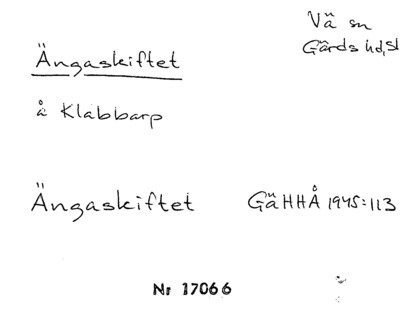 Vä sn
Gärds hd, Sk
Ängaskiftet
å Klabbarp
Ängaskiftet GäHHÅ 1945:113
Nr 17066